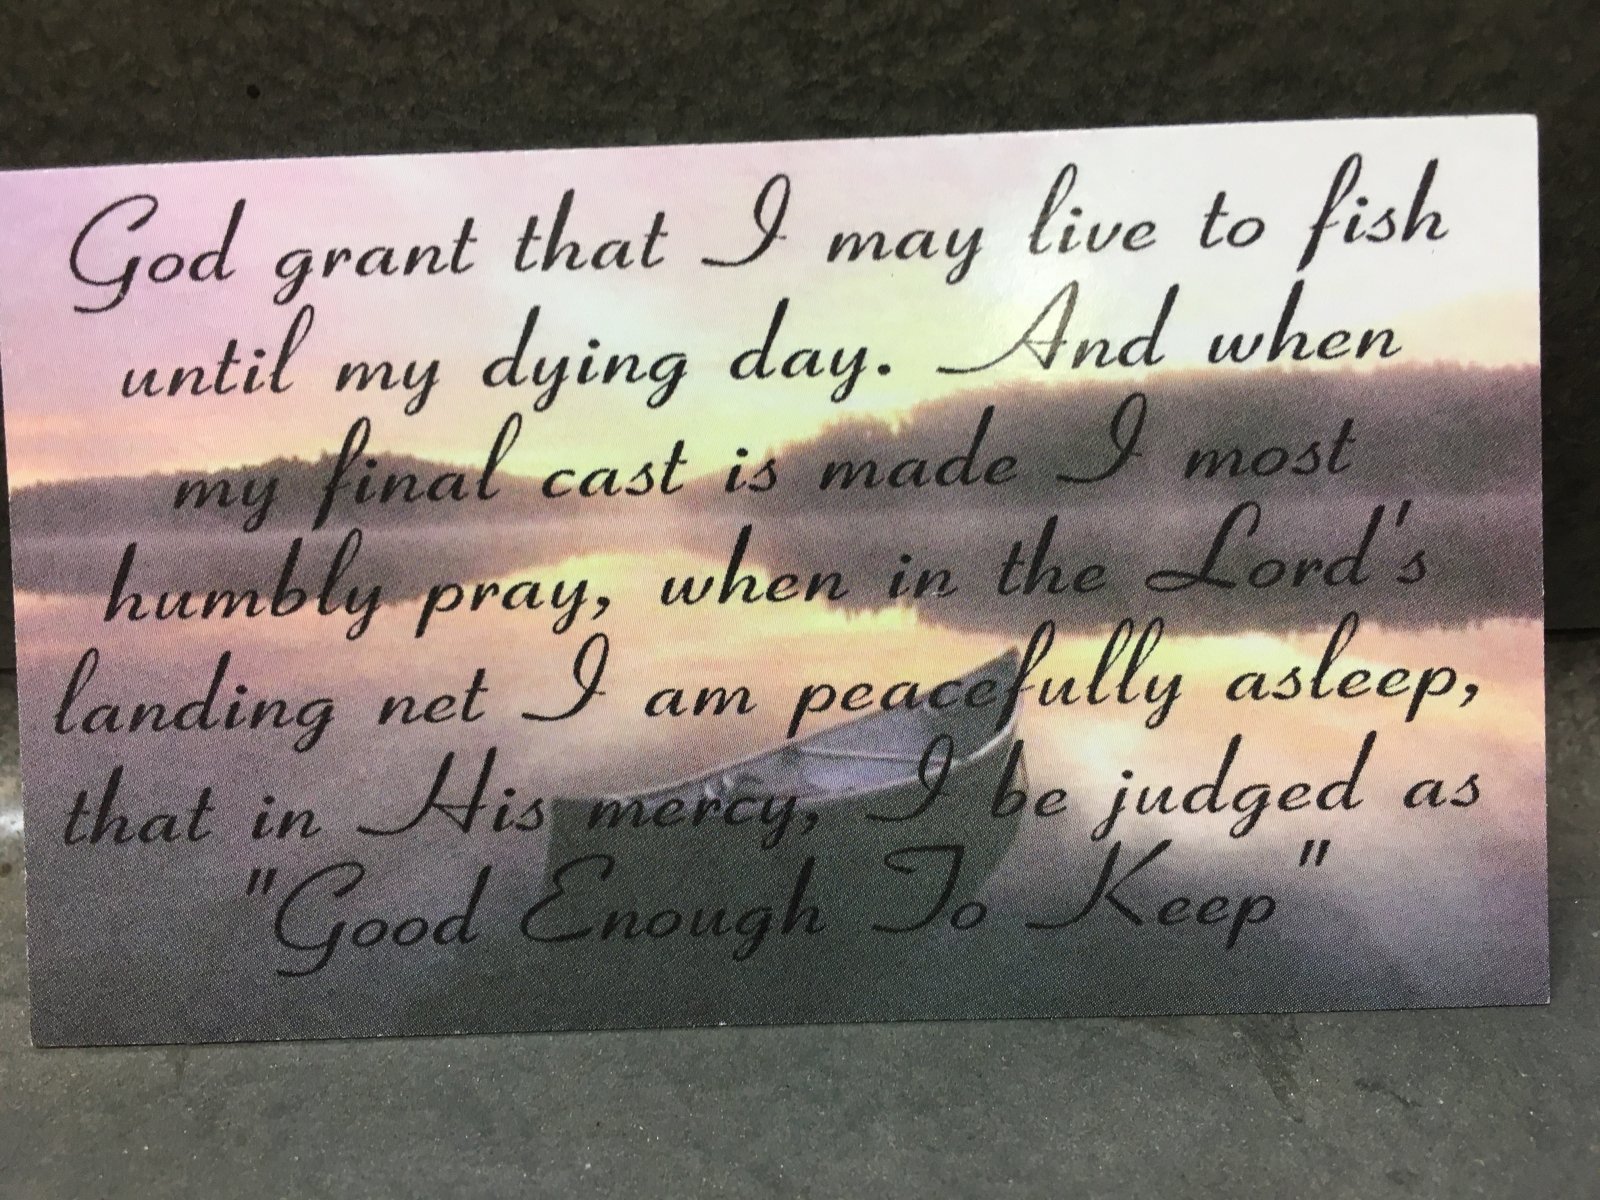 God grant that I may live to fish
until my dying day. And when
my final cast is made I most
humbly pray, when in the Lord's
landing net I am peacefully asleep,
that in His mercy, I be judged as
"Good Enough To Keep"